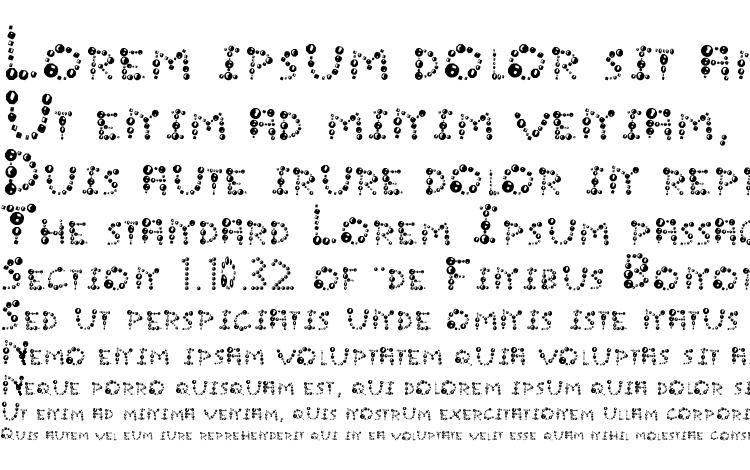 Lorem ipsum dolor sit am
Ut enim ad minim veniam,
Duis aute irure dolor in repr
The standard Lorem Ipsum passag
Section 1.10.32 of "de Finibus Bonor
Sed ut perspiciatis unde omnis iste natus
Nemo enim ipsam voluptatem quia voluptas sit a
Neque porro quisquam est, qui dolorem ipsum quia dolor si
Ut enim ad minima veniam, quis nostrum exercitationem ullam corpori
Quis autem vel eum iure reprehenderit qui in ea voluptate velit esse quam nihil molestiae conse